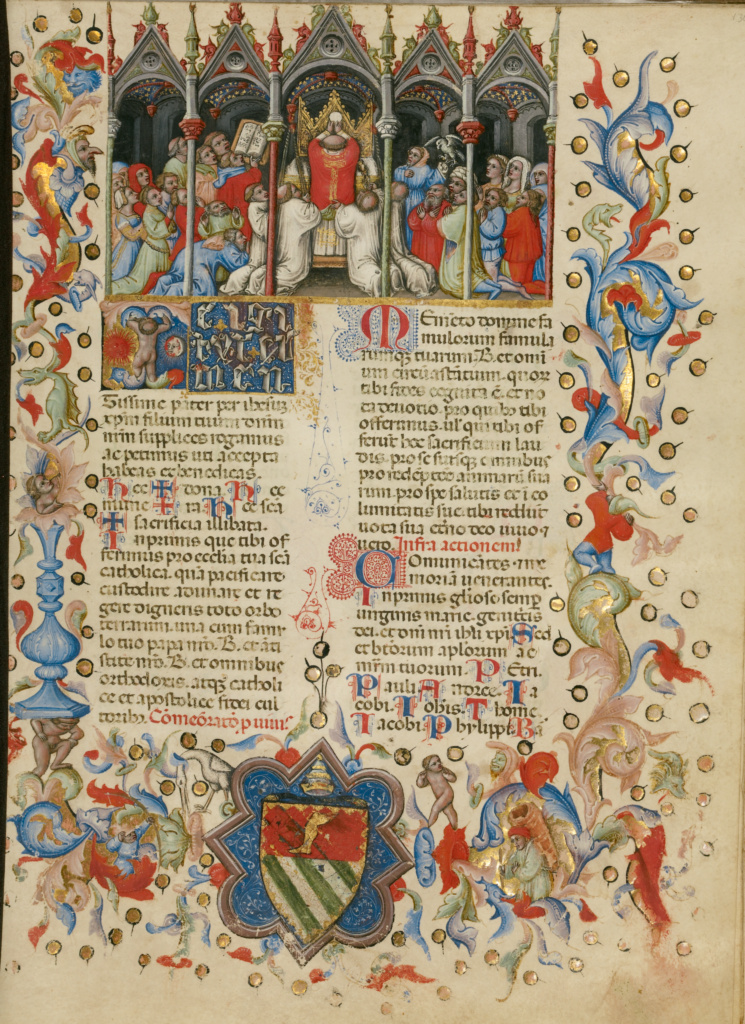 Te igi
tur cle
men
tissime pater per ihesum
xpm filium tuum dnm
nrm supplices rogamus
ac petimus uti accepta
habeas et benedicas.
Hec ✝ dona. Hec
mune ✝ ra. Hec scā
✝ sacrificia illibata.
In primis que tibi of
ferimus pro ecclīa tua scā
catholica. quā pacificare
custodire adunare et re
gere digneris toto orbe
terrarum. una cum famu
lo tuo papa nrō. B. et āti
stite nrō. B. et omnibus
orthodoxis. atqz catholi
ce et apostolice fidei cul
toribus. Cōmeōratō p uiuis
Memēto domine fa
mulorum famula
rumqz tuarum. B. et omī
um circūastātium. quorz
tibi fides cognita ē. et no
ta deuotio. pro quibz tibi
offerimus. ul qui tibi of
ferūt hoc sacrificium lau
dis. pro se suisqz omnibus
pro redēptiōe animarū sua
rum. pro spe salutis et ī co
lumitatis sue. tibi reddūt
uota sua eterno deo uiuo et
uero. Infra actionem
Comunicātes. et me
moriā uenerantes.
In primis gliose semper
uirginis marie. genitricis
dei. et dnī nrī ihū xpī. Sed
et btōrum aplōrum ac
mrm tuorum. Petri.
Pauli. Andree. Ia
cobi. Iohis. Thome.
Iacobi. Phylippi. Ba